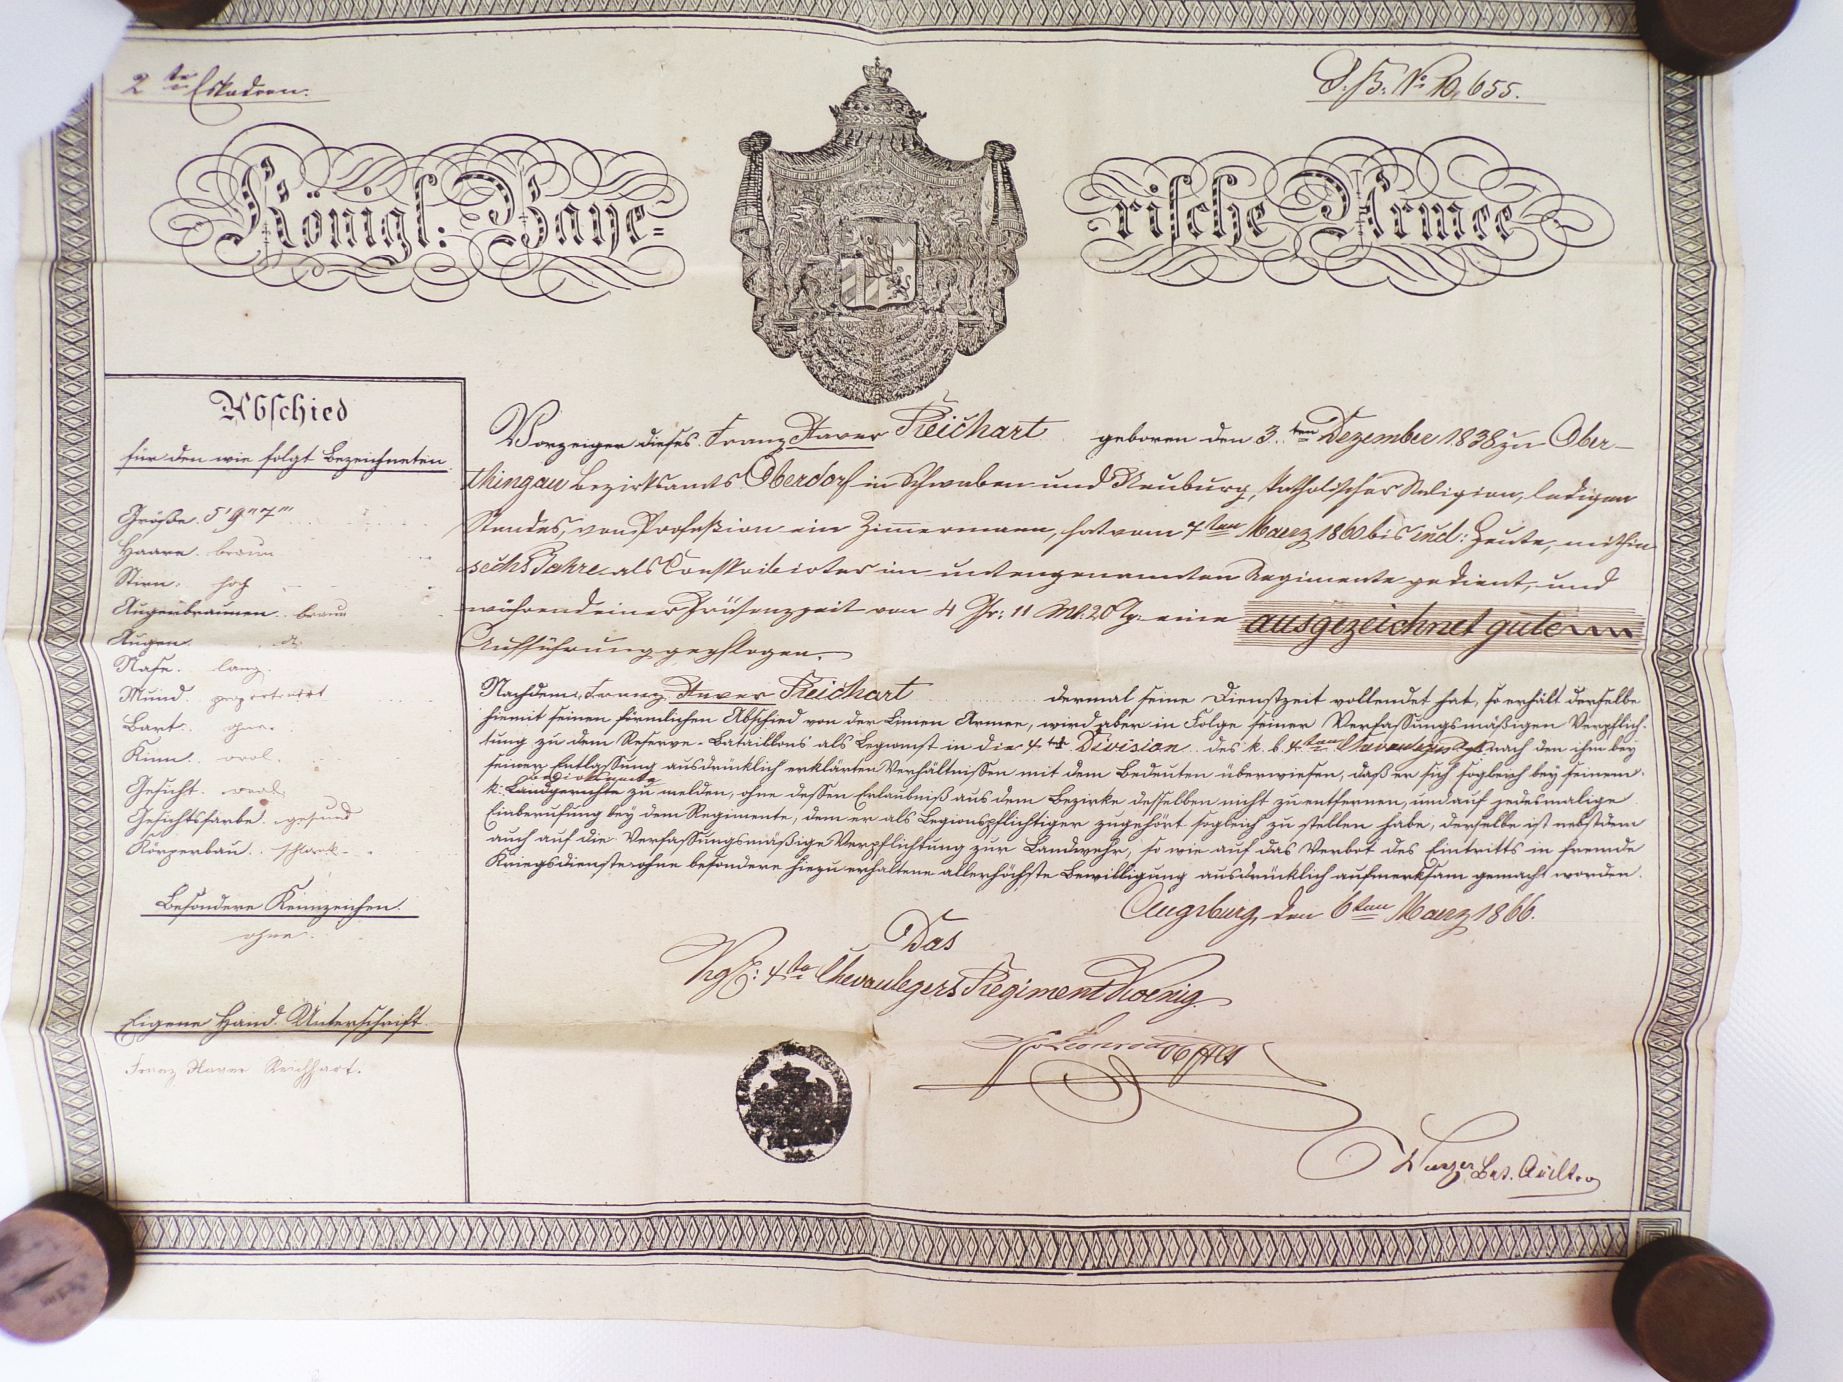 2te Eskadron.
G. B. No 10,655.
Königl: Baye=
rische Armee
Abschied
für den wie folgt Bezeichneten
Größe. 5' 9" 7'''
Haare. braun
Stirn. hoch
Augenbraunen. braun
Augen. dt.
Nase. lang.
Mund. proportionirt
Bart. ohne.
Kinn. oval.
Gesicht. oval.
Gesichtsfarbe. gesund
Körperbau. schlank.
Besondere Kennzeichen.
ohne.
Eigene Hand-Unterschrift
Franz Xaver Reichhart.
Vorzeiger dieses Franz Xaver Reichart geboren den 3.ten Dezember 1838 zu Ober-
thingau Bezirksamts Oberdorf in Schwaben und Neuburg, katholischer Religion, ledigen
Standes, von Profeßion ein Zimmermann, hat vom 7ten Maerz 1860 bis incl: Heute, mithin
sechs Jahre als Conskribirter im untengenannten Regimente gedient, und
während einer Präsenzzeit von 4 Jhr: 11 Mt: 20 Tg: eine ausgezeichnet gute
Aufführung gepflogen.
Nachdem Franz Xaver Reichart dermal seine Dienstzeit vollendet hat, so erhält derselbe
hiemit seinen förmlichen Abschied von der Linien Armee, wird aber in Folge seiner Verfassungsmäßigen Verpflich-
tung zu dem Reserve-Bataillons als Legionist in die 4te Division des k. b. 4ten Chevaulegers Rgts nach den ihm bey
seiner Entlassung ausdrücklich erklärten Verhältnissen mit dem Bedeuten überwiesen, daß er sich sogleich bey seinem
Bezirksamte
k: Landgerichte zu melden, ohne dessen Erlaubniß aus dem Bezirke desselben nicht zu entfernen, und auf jedesmalige
Einberufung bey dem Regimente, dem er als Legionspflichtiger zugehört sogleich zu stellen habe, derselbe ist nebstdem
auch auf die Verfassungsmäßige Verpflichtung zur Landwehr, so wie auf das Verbot des Eintritts in fremde
Kriegsdienste ohne besondere hiezu erhaltene allerhöchste Bewilligung ausdrücklich aufmerksam gemacht worden.
Augsburg, den 6ten Maerz 1866.
Das
Kgl: 4te Chevaulegers Regiment Koenig